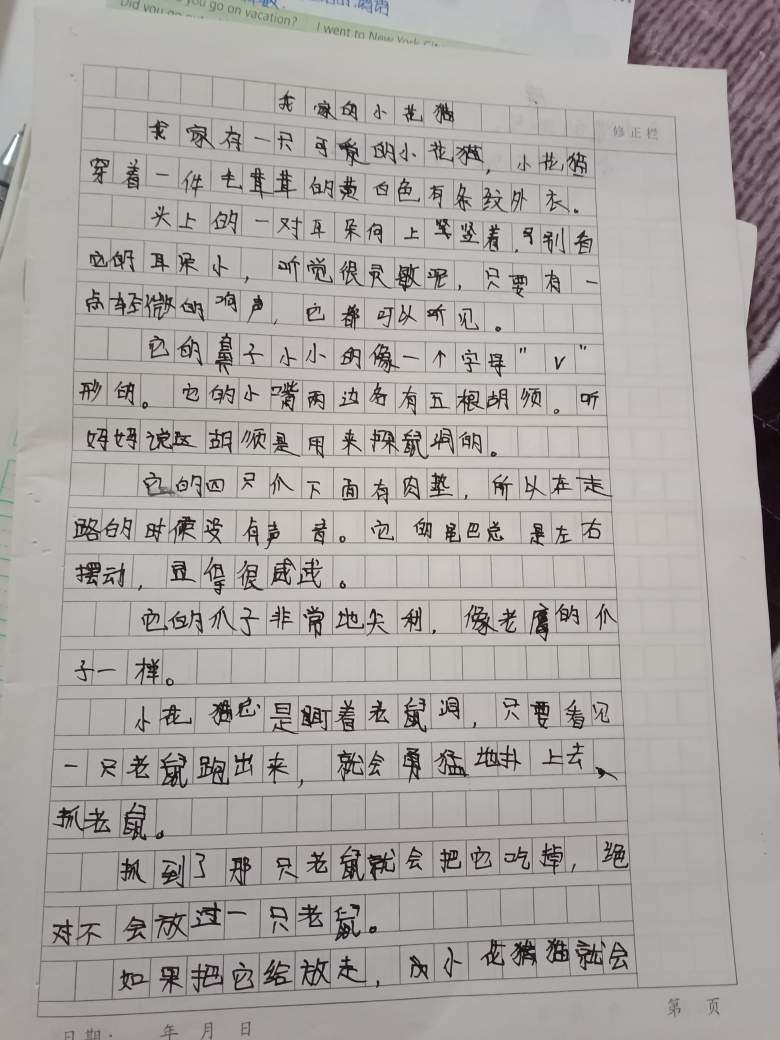 you go on vacation? I went to New York City
Did you go out
我家的小花猫
修正栏
我家有一只可爱的小花猫，小花猫
穿着一件毛茸茸的黄白色有条纹外衣。
头上的一对耳朵向上竖竖着，可别看
它的耳朵小，听觉很灵敏呢，只要有一
点轻微的响声，它都可以听见。
它的鼻子小小的像一个字母"v"
形的。它的小嘴两边各有五根胡须。听
妈妈说这胡须是用来探鼠洞的。
它的四只爪下面有肉垫，所以在走
路的时候没有声音。它的尾巴总是左右
摆动，显得很威武。
它的爪子非常地尖利，像老鹰的爪
子一样。
小花猫总是盯着老鼠洞，只要看见
一只老鼠跑出来，就会勇猛地扑上去、
抓老鼠。
抓到了那只老鼠就会把它吃掉，绝
对不会放过一只老鼠。
如果把它给放走，小花猫猫就会
第 页
日期： 年 月 日